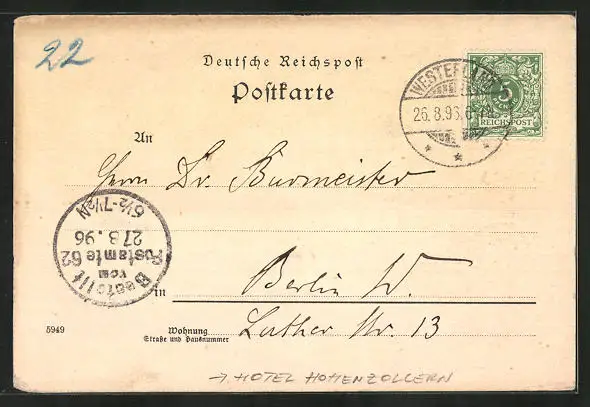 22
Deutsche Reichspost
Postkarte
WESTERLAND
26.8.96.
5
REICHSPOST
An
Herrn Dr. Burmeister
Bestellt
vom
Postamte 62
27.8.96
6½-7½N
in Berlin W.
Luther Str. 13
5949
Wohnung
Straße und Hausnummer
→ HOTEL HOHENZOLLERN